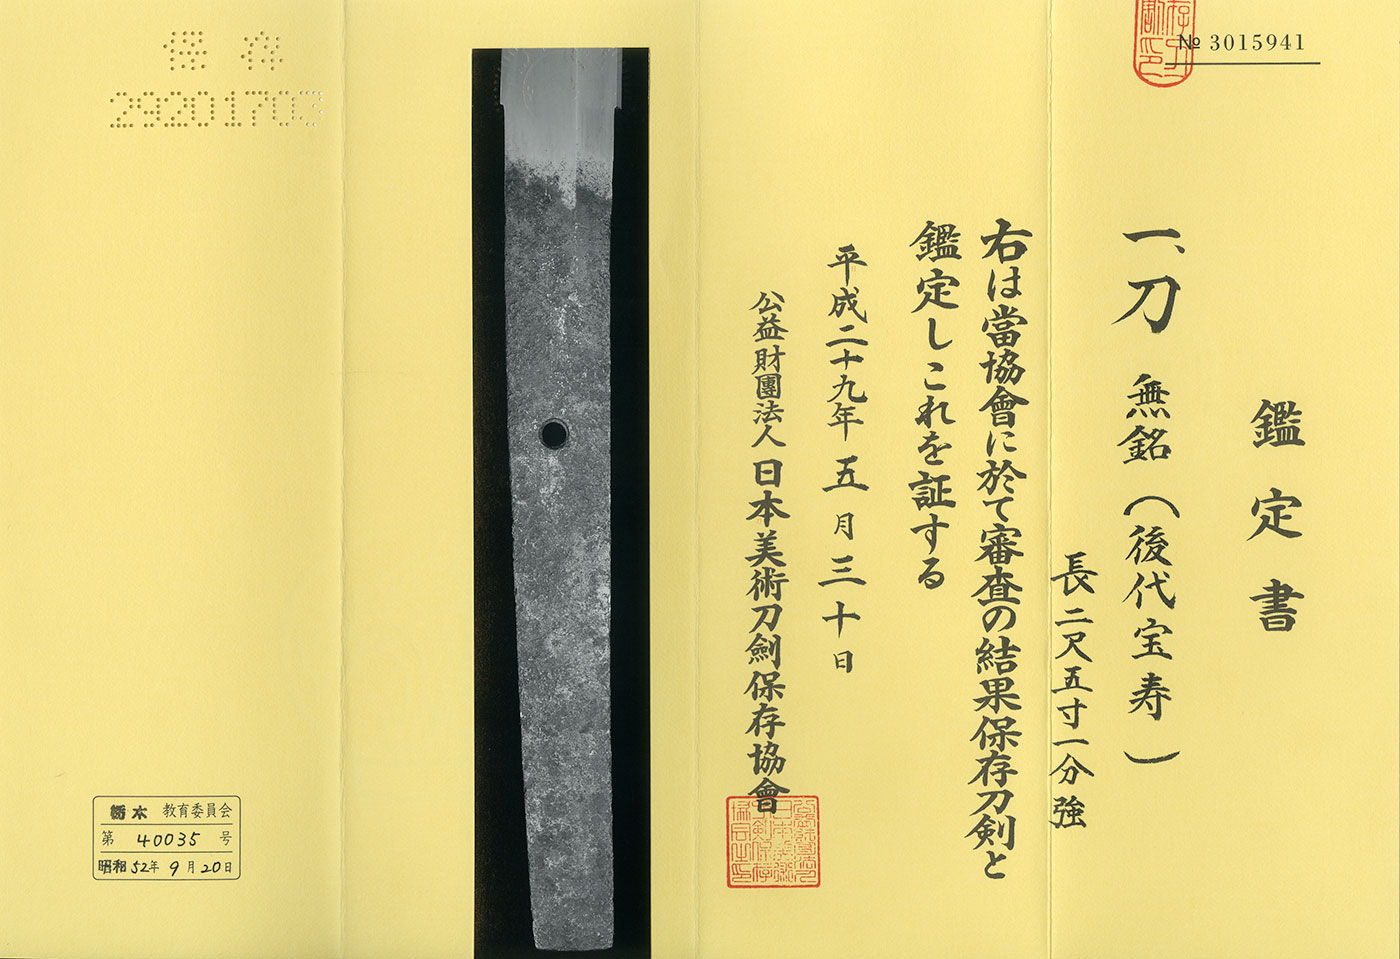 № 3015941
鑑定書
一、刀 無銘（後代宝寿）
長二尺五寸一分強
右は當協會に於て審査の結果保存刀剣と
鑑定しこれを証する
平成二十九年五月三十日
公益財團法人日本美術刀劍保存協會
保存
29201703
栃木 教育委員会
第 40035 号
昭和52年9月20日